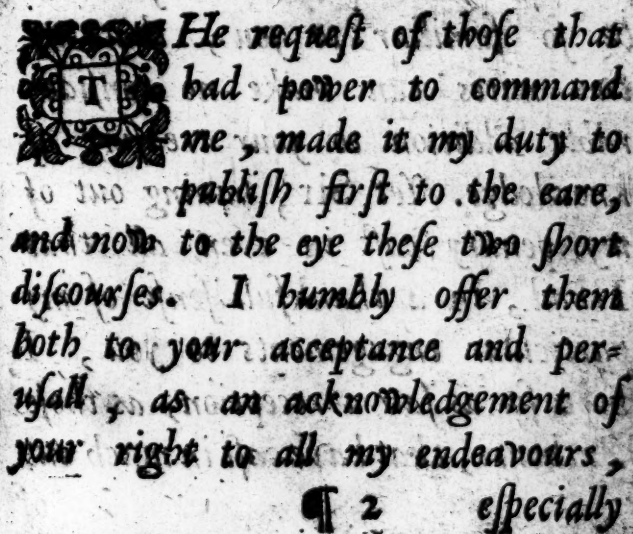 THe requeſt of thoſe that
had power to command
me, made it my duty to
publiſh firſt to the eare,
and now to the eye theſe two ſhort
diſcourſes. I humbly offer them
both to your acceptance and per=
uſall, as an acknowledgement of
your right to all my endeavours,
¶ 2 eſpecially